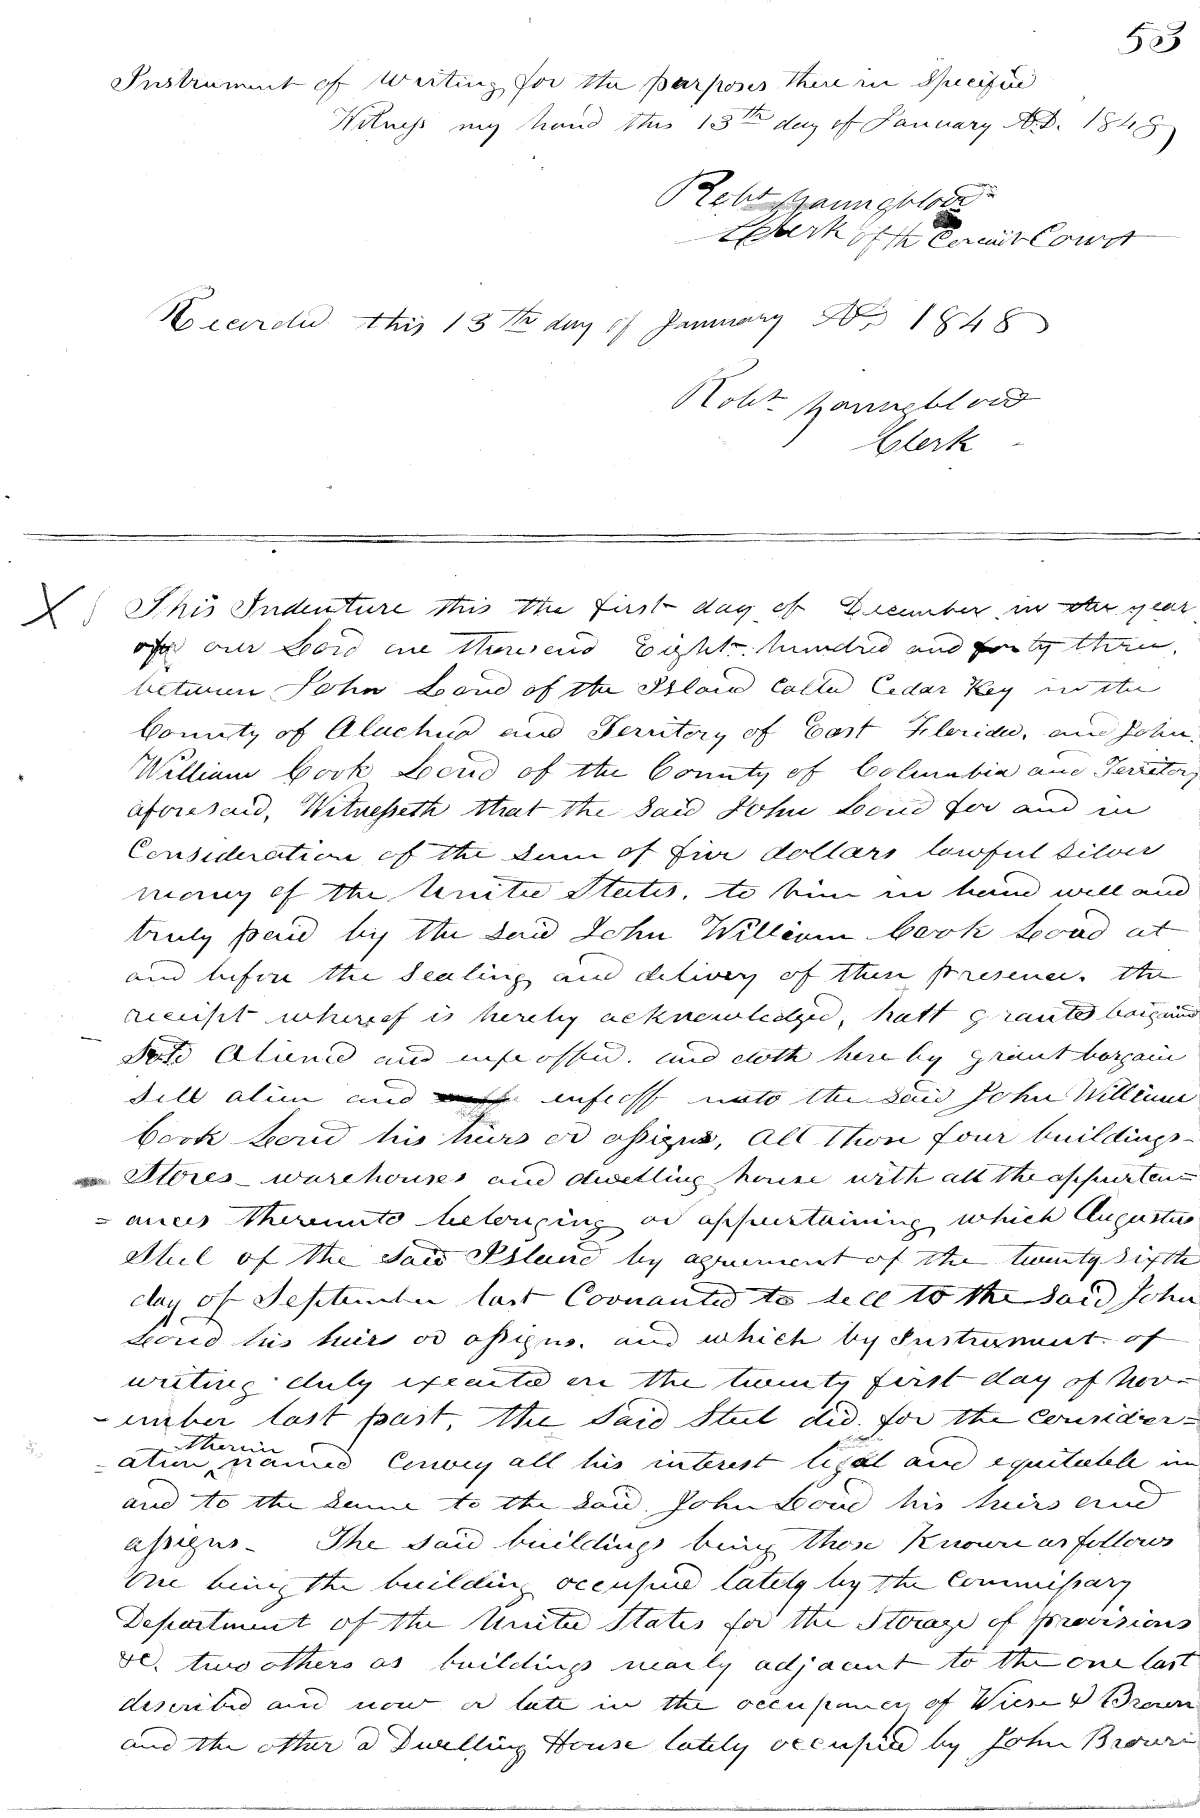 53
Instrument of writing for the purposes there in Specified
Witness my hand this 13th day of January A.D. 1848
Robt Youngblood
Clerk of the Circuit Court
Recorded this 13th day of January AD, 1848
Robt Youngblood
Clerk
X This Indenture this the first day of December in the year
of our Lord one thousand Eight hundred and forty three,
between John Loud of the Island Called Cedar Key in the
County of Alachua and Territory of East Florida, and John
William Cook Loud of the County of Columbia and Territory
aforesaid, Witnesseth that the said John Loud for and in
Consideration of the sum of five dollars lawful silver
money of the United States, to him in hand well and
truly paid by the said John William Cook Loud at
and before the sealing and delivery of these presence, the
receipt whereof is hereby acknowledged, hatt granted bargained
Sold Aliened and enfeoffed. and doth here by grant bargain
sell alien and enfeoff unto the said John William
Cook Loud his heirs or assigns, All those four buildings-
Stores- warehouses and dwelling house with all the appurten=
=ances thereunto belonging or appurtaining which Augustus
Steel of the said Island by agreement of the twenty sixth
day of September last Covenanted to sell to the said John
Loud his heirs or assigns. and which by Instrument of
writing duly executed on the twenty first day of Nov-
-ember last past, the said Steel did for the consider=
=ation therein named Convey all his interest legal and equitable in
and to the same to the said John Loud his heirs and
assigns- The said buildings being those Known as follows
One being the building occupied lately by the Commissary
Department of the United States for the Storage of provisions
&c. two others as buildings nearly adjacent to the one last
described and now or late in the occupancy of Wiese & Brown
and the other a Dwelling House lately occupied by John Brown